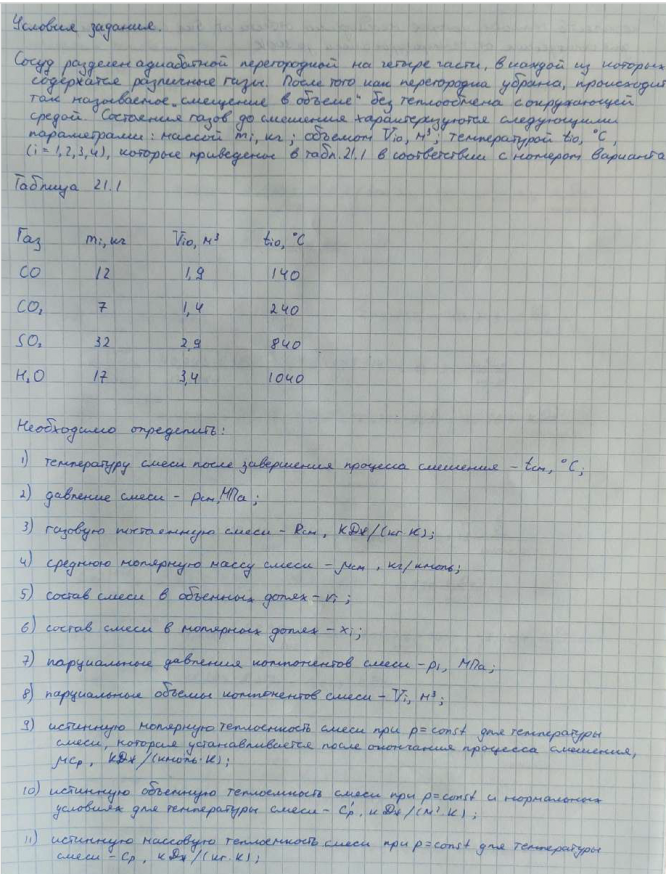 Условия задания.
Сосуд разделен адиабатной перегородкой на четыре части, в каждой из которых
содержатся различные газы. После того как перегородка убрана, происходит
так называемое „смешение в объеме" без теплообмена с окружающей
средой. Состояния газов до смешения характеризуются следующими
параметрами: массой mi, кг; объемом Vio, м³; температурой tio, °C,
(i = 1,2,3,4), которые приведены в табл. 21.1 в соответствии с номером варианта
Таблица 21.1
Газ mi, кг Vio, м³ tio, °C
CO 12 1,9 140
CO₂ 7 1,4 240
SO₂ 32 2,9 840
H₂O 17 3,4 1040
Необходимо определить:
1) температуру смеси после завершения процесса смешения – tсм, °C;
2) давление смеси – pсм, МПа;
3) газовую постоянную смеси – Rсм, кДж/(кг·К);
4) среднюю молярную массу смеси – μсм, кг/кмоль;
5) состав смеси в объемных долях – ri;
6) состав смеси в молярных долях – xi;
7) парциальные давления компонентов смеси – pi, МПа;
8) парциальные объемы компонентов смеси – Vi, м³;
9) истинную молярную теплоемкость смеси при p=const для температуры
смеси, которая устанавливается после окончания процесса смешения,
μcp, кДж/(кмоль·К);
10) истинную объемную теплоемкость смеси при p=const и нормальных
условиях для температуры смеси – C'p, кДж/(м³·К);
11) истинную массовую теплоемкость смеси при p=const для температуры
смеси – Cp, кДж/(кг·К);